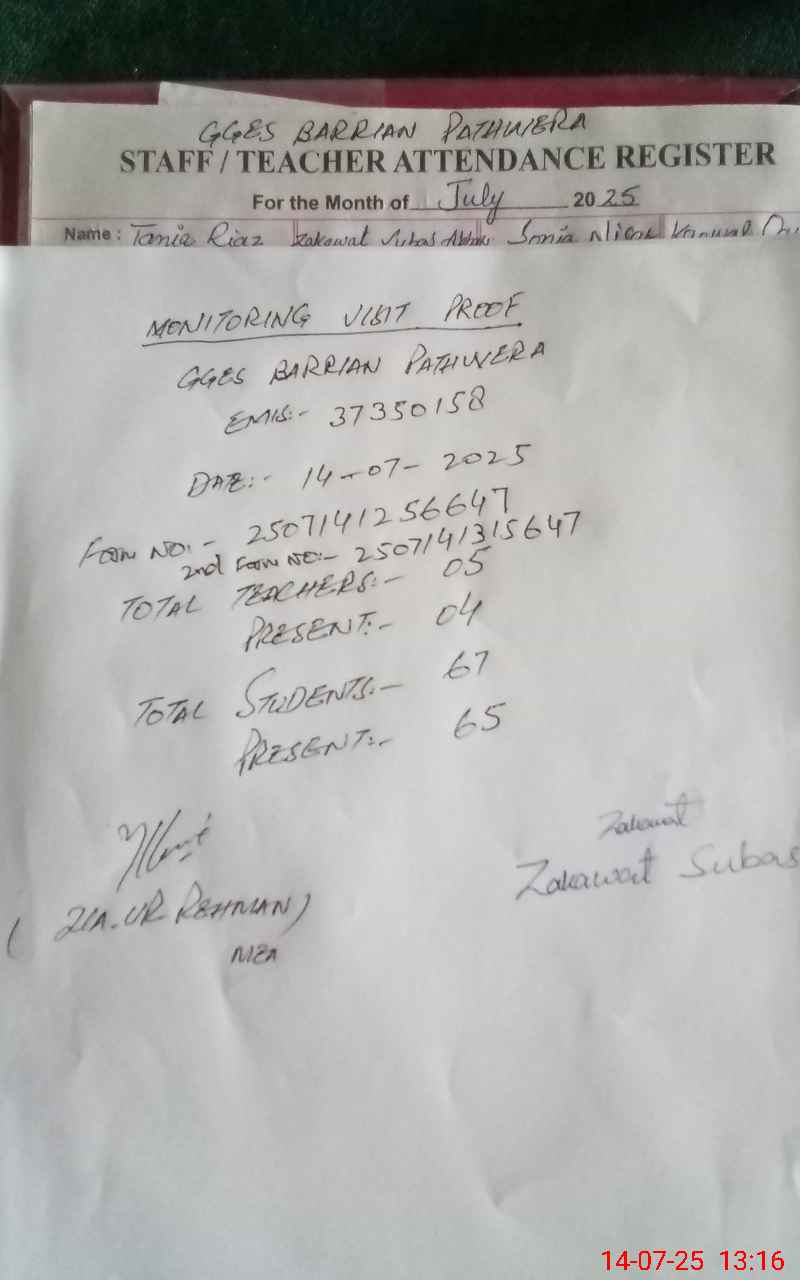 GGES BARRIAN PATHWERA
STAFF / TEACHER ATTENDANCE REGISTER
For the Month of July 2025
Name : Tania Riaz Zakawat Subas Sonia Kanwal
MONITORING VISIT PROOF
GGES BARRIAN PATHWERA
EMIS:- 37350158
DATE:- 14-07-2025
FORM NO:- 2507141256647
2nd FORM NO:- 2507141315647
TOTAL TEACHERS:- 05
PRESENT:- 04
TOTAL STUDENTS:- 67
PRESENT:- 65
Zakawat
Zakawat Subas
(ZIA-UR REHMAN)
MEA
14-07-25 13:16